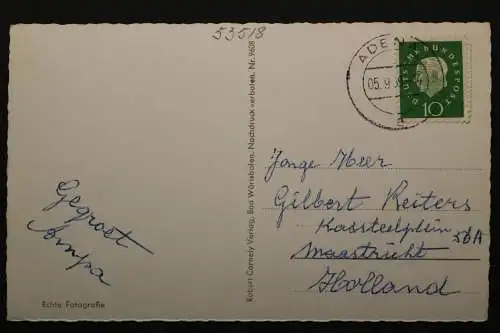 53518
ADENAU
05.9.
a
DEUTSCHE BUNDESPOST
10
Gegroet
ompa
Echte Fotografie
Robert Cornely Verlag, Bad Wörishofen. Nachdruck verboten. Nr. 968
Jonge Heer
Gilbert Reiters
Kasteelplein 5bA
Maastricht
Holland